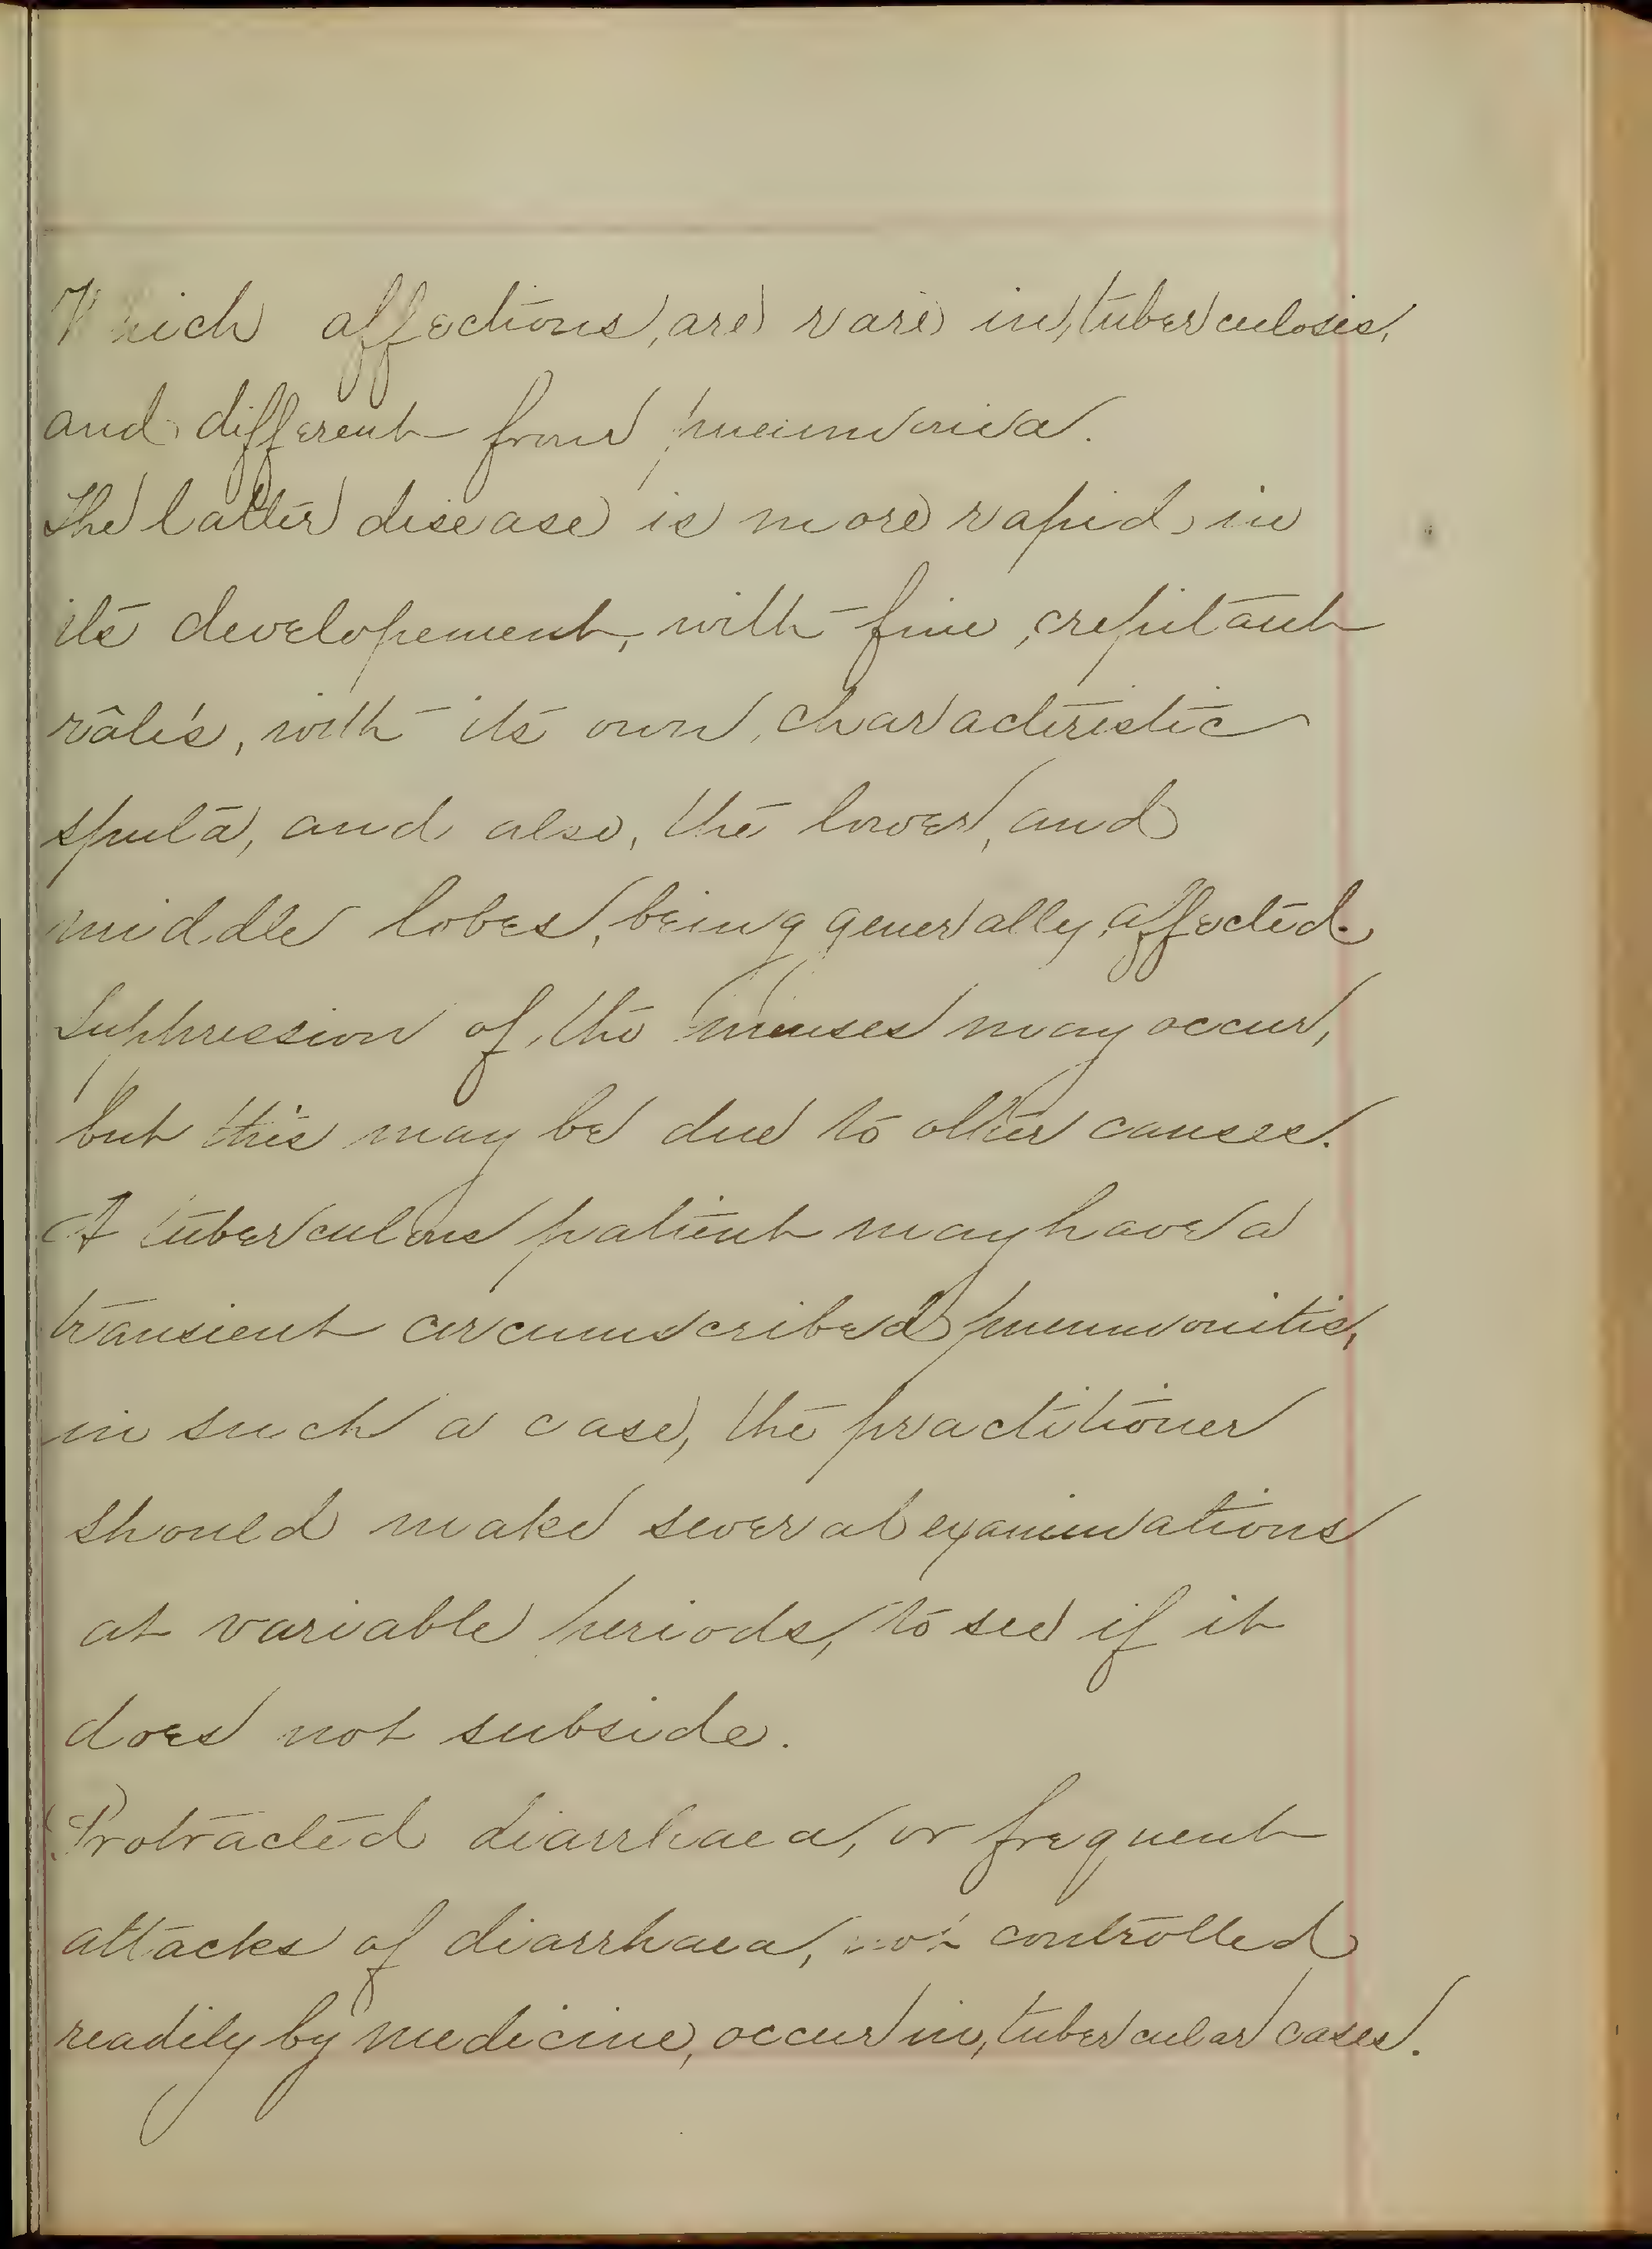 Which affections, are rare in, tuberculosis,
and different from pneumonia.
The latter disease is more rapid, in
its developement, with fine, crepitant
râles, with its own, characteristic
sputa, and also, the lower, and
middle lobes, being generally, affected.
Suppression of, the menses may occur,
but this may be due to other causes.
A tuberculous patient may have a
transient circumscribed pneumonitis,
in such a case, the practitioner
should make several examinations
at variable periods, to see if it
does not subside.
Protracted diarrhaea, or frequent
attacks of diarrhaea, not controlled
readily by medicine, occur in, tubercular cases.